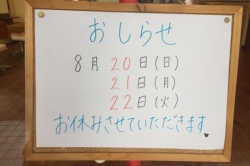 おしらせ
8月20日(日)
21日(月)
22日(火)
お休みさせていただきます